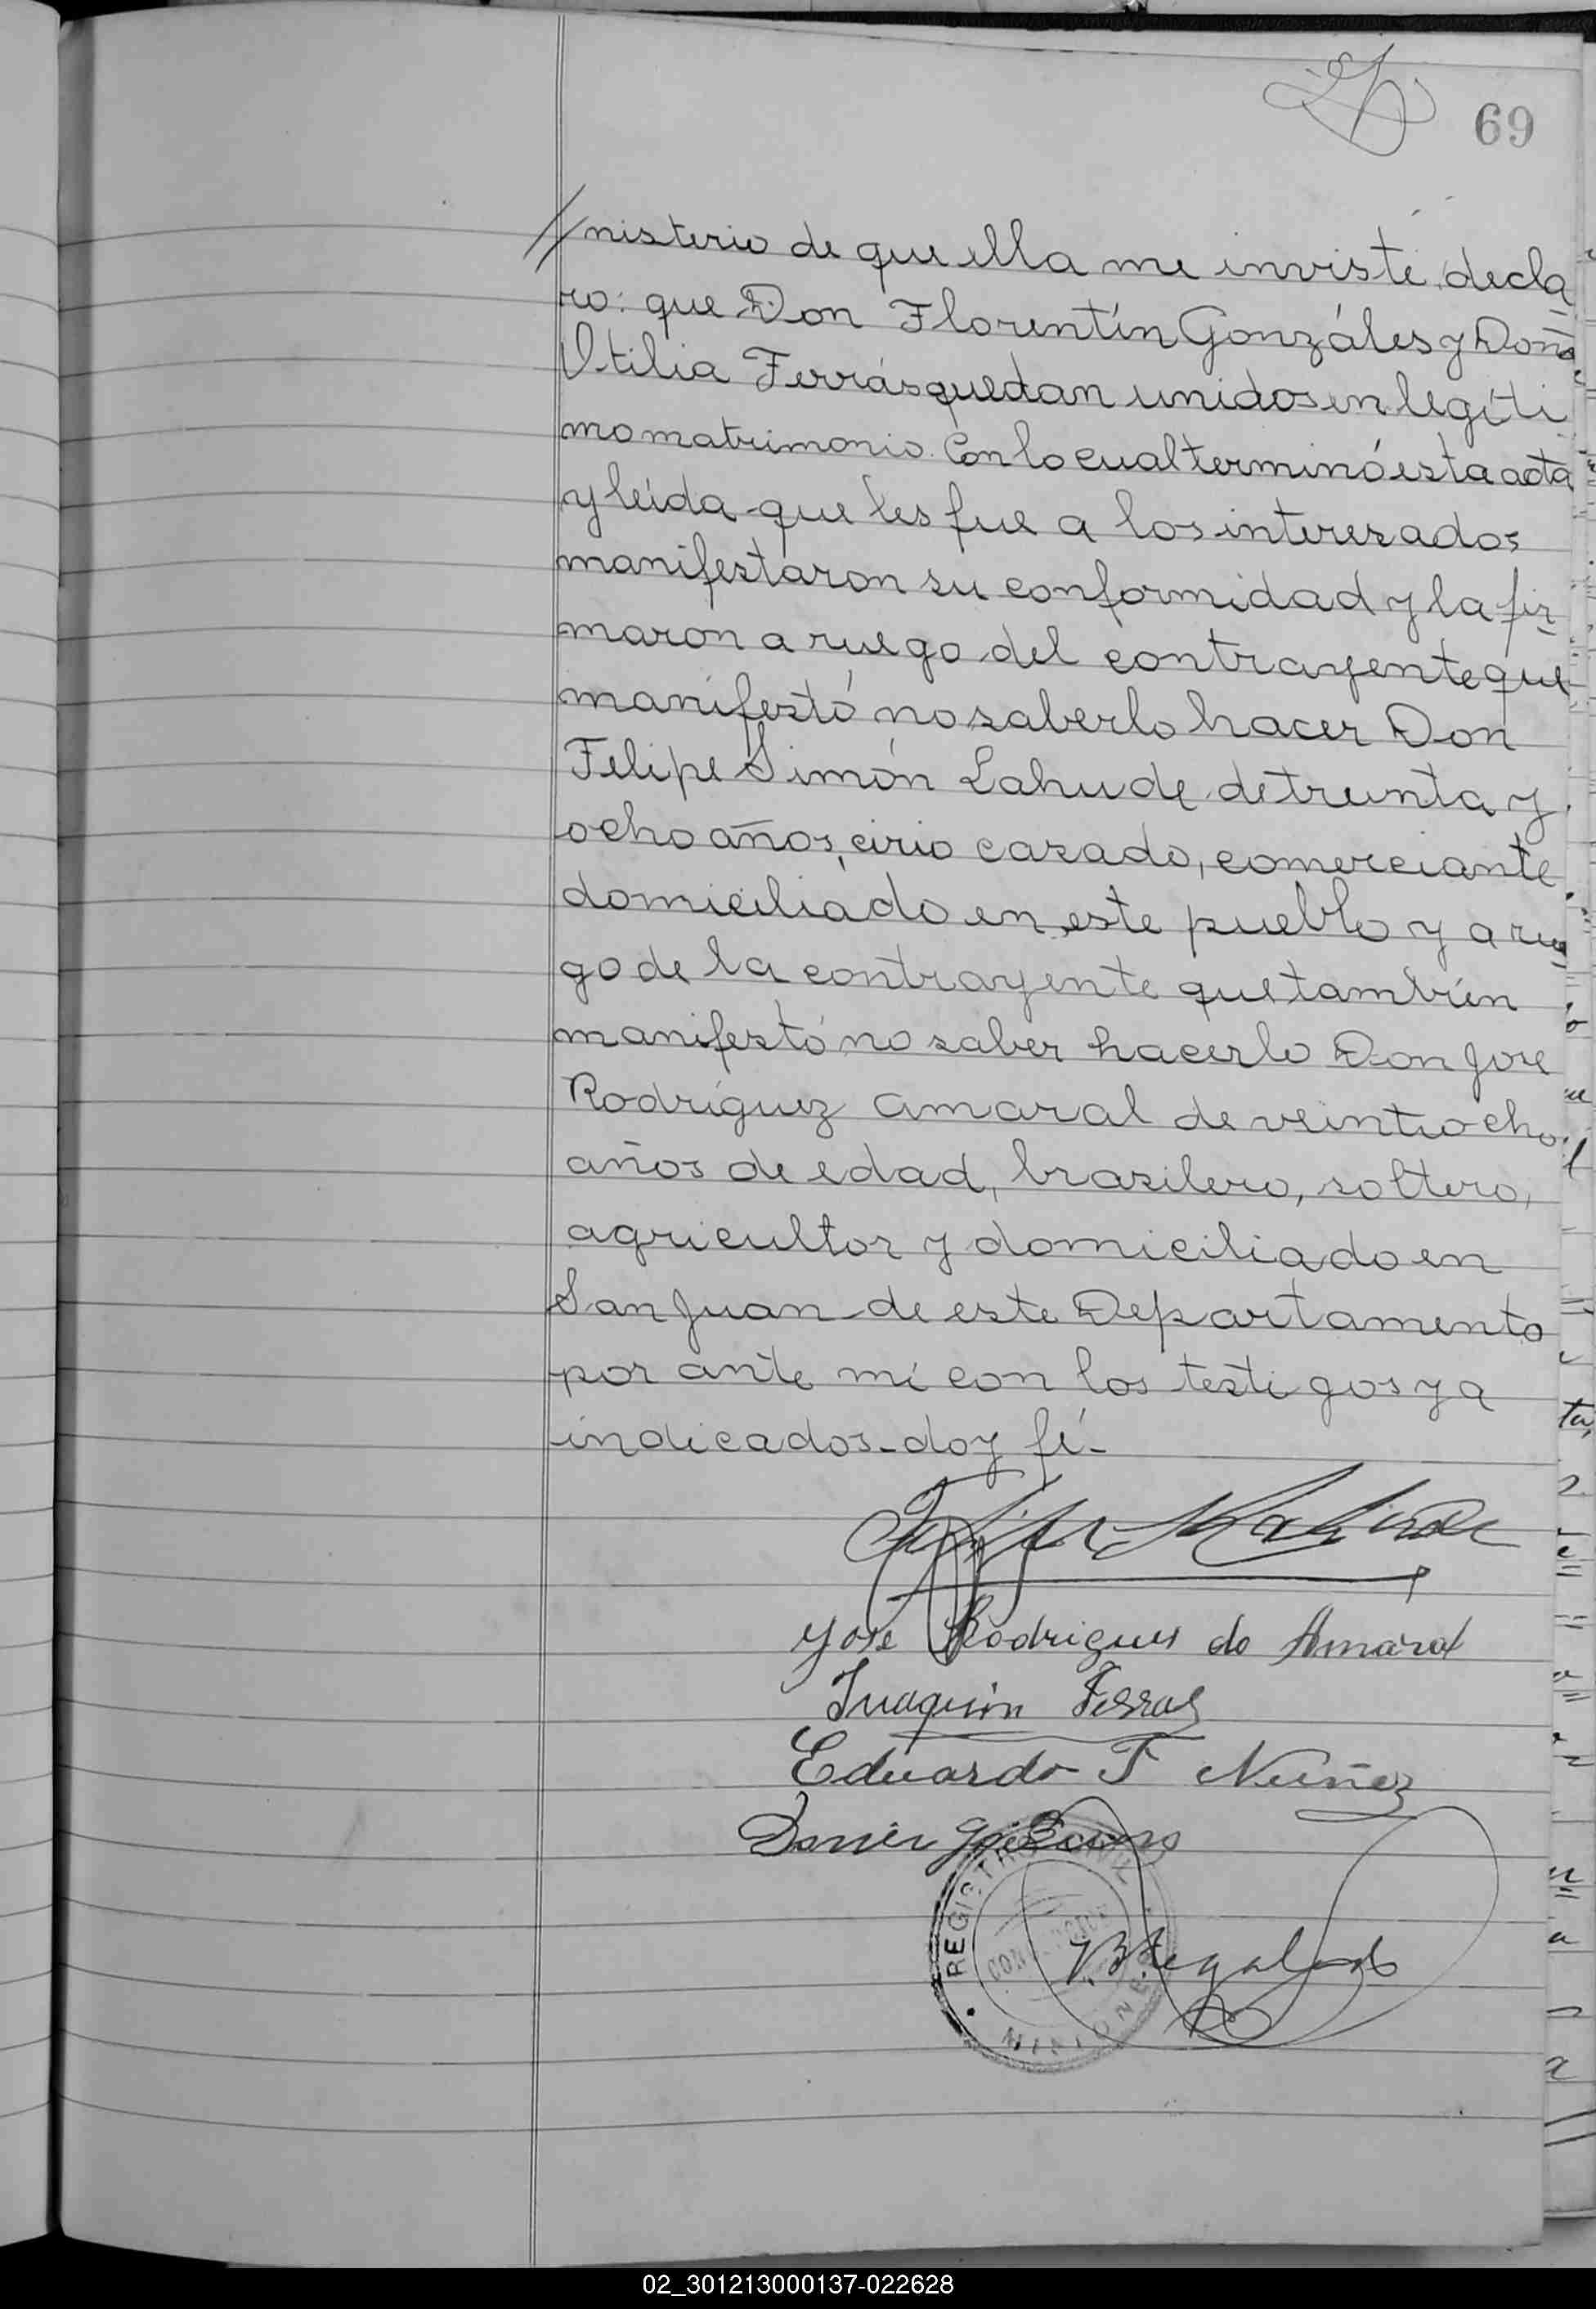 69
//nisterio de que ella me inviste decla
ro: que Don Florentín Gonzáles y Doña
Utilia Ferrás quedan unidos en legíti
mo matrimonio. Con lo cual terminó esta acta
y leída que les fue a los interezados
manifestaron su conformidad y la fir
maron a ruego del contrayente que
manifestó no saberlo hacer Don
Felipe Simón Lahude de treinta y
ocho años, cirio cazado, comerciante
domiciliado en este pueblo y a rue
go de la contrayente que también
manifestó no saber hacerlo Don Jose
Rodríguez Amaral de veintiocho
años de edad, brazilero, soltero,
agricultor y domiciliado en
San Juan de este Departamento
por ante mí con los testigos ya
indicados-doy fé-
Jose Rodrigues do Amaral
Juaquin Ferras
Eduardo T Nuñez
REGISTRO CIVIL
MISIONES
02_301213000137-022628